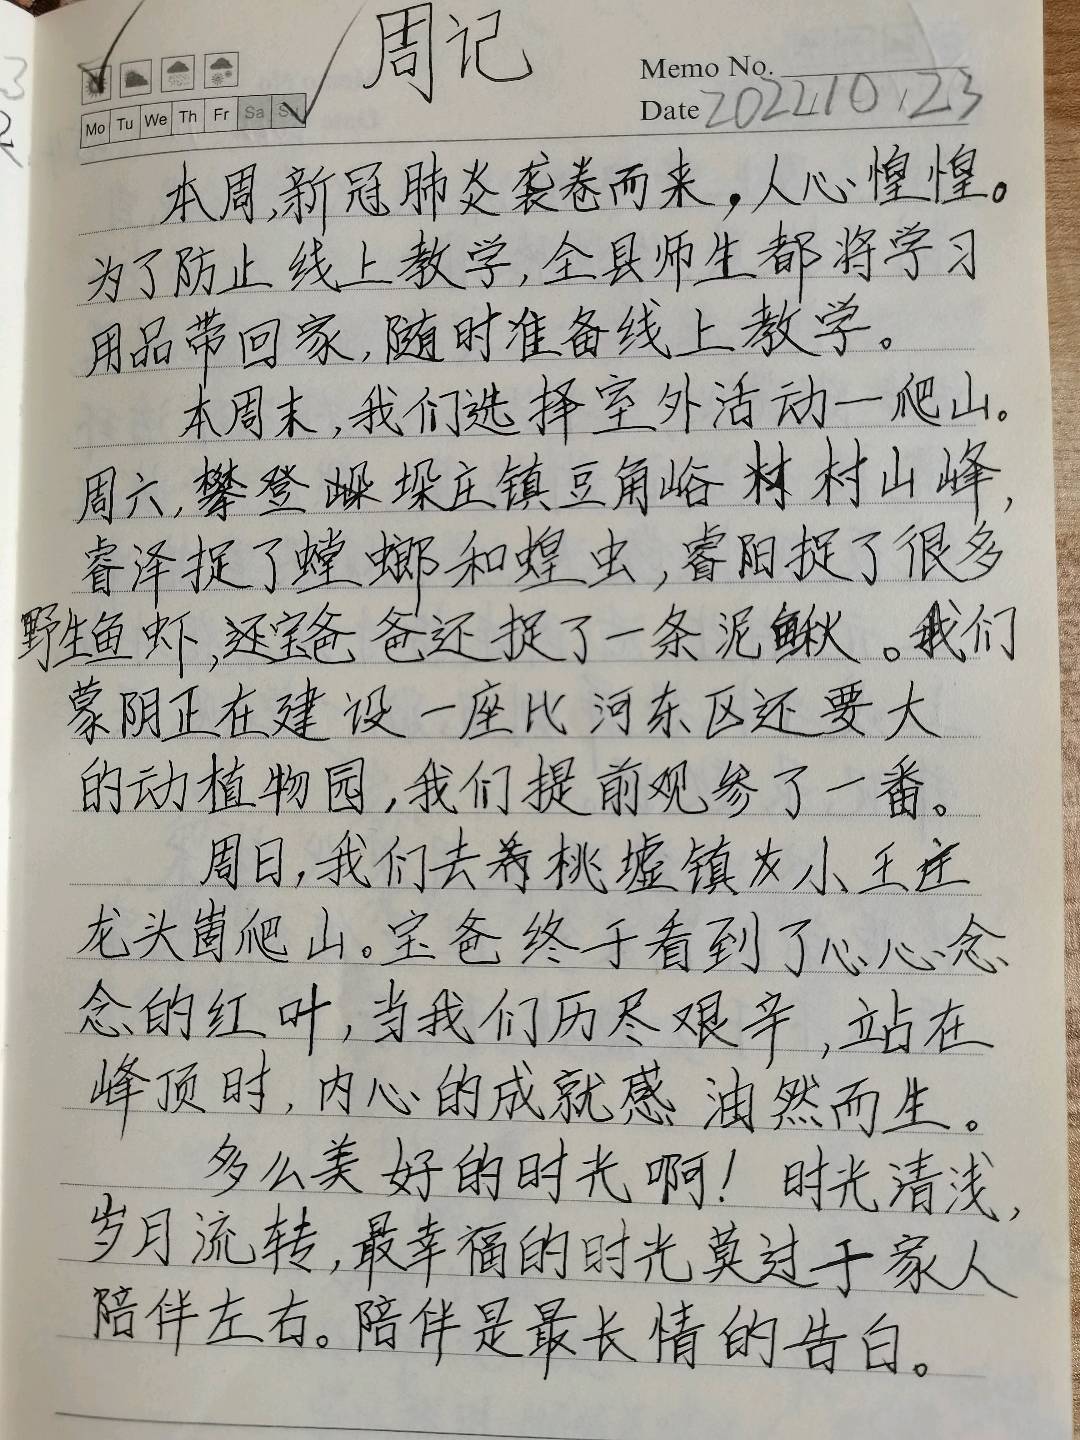 周记
Memo No.
Date 2022.10.23
Mo Tu We Th Fr Sa Su
本周,新冠肺炎袭卷而来,人心惶惶。
为了防止线上教学,全县师生都将学习
用品带回家,随时准备线上教学。
本周末,我们选择室外活动一爬山。
周六,攀登 垛庄镇豆角峪 村山峰,
睿泽捉了螳螂和蝗虫,睿阳捉了很多
野生鱼虾,还宝爸爸还捉了一条泥鳅。我们
蒙阴正在建设一座比河东区还要大
的动植物园,我们提前观参了一番。
周日,我们去 桃墟镇 小王庄
龙头崮爬山。宝爸终于看到了心心念
念的红叶,当我们历尽艰辛,站在
峰顶时,内心的成就感油然而生。
多么美好的时光啊!时光清浅,
岁月流转,最幸福的时光莫过于家人
陪伴左右。陪伴是最长情的告白。